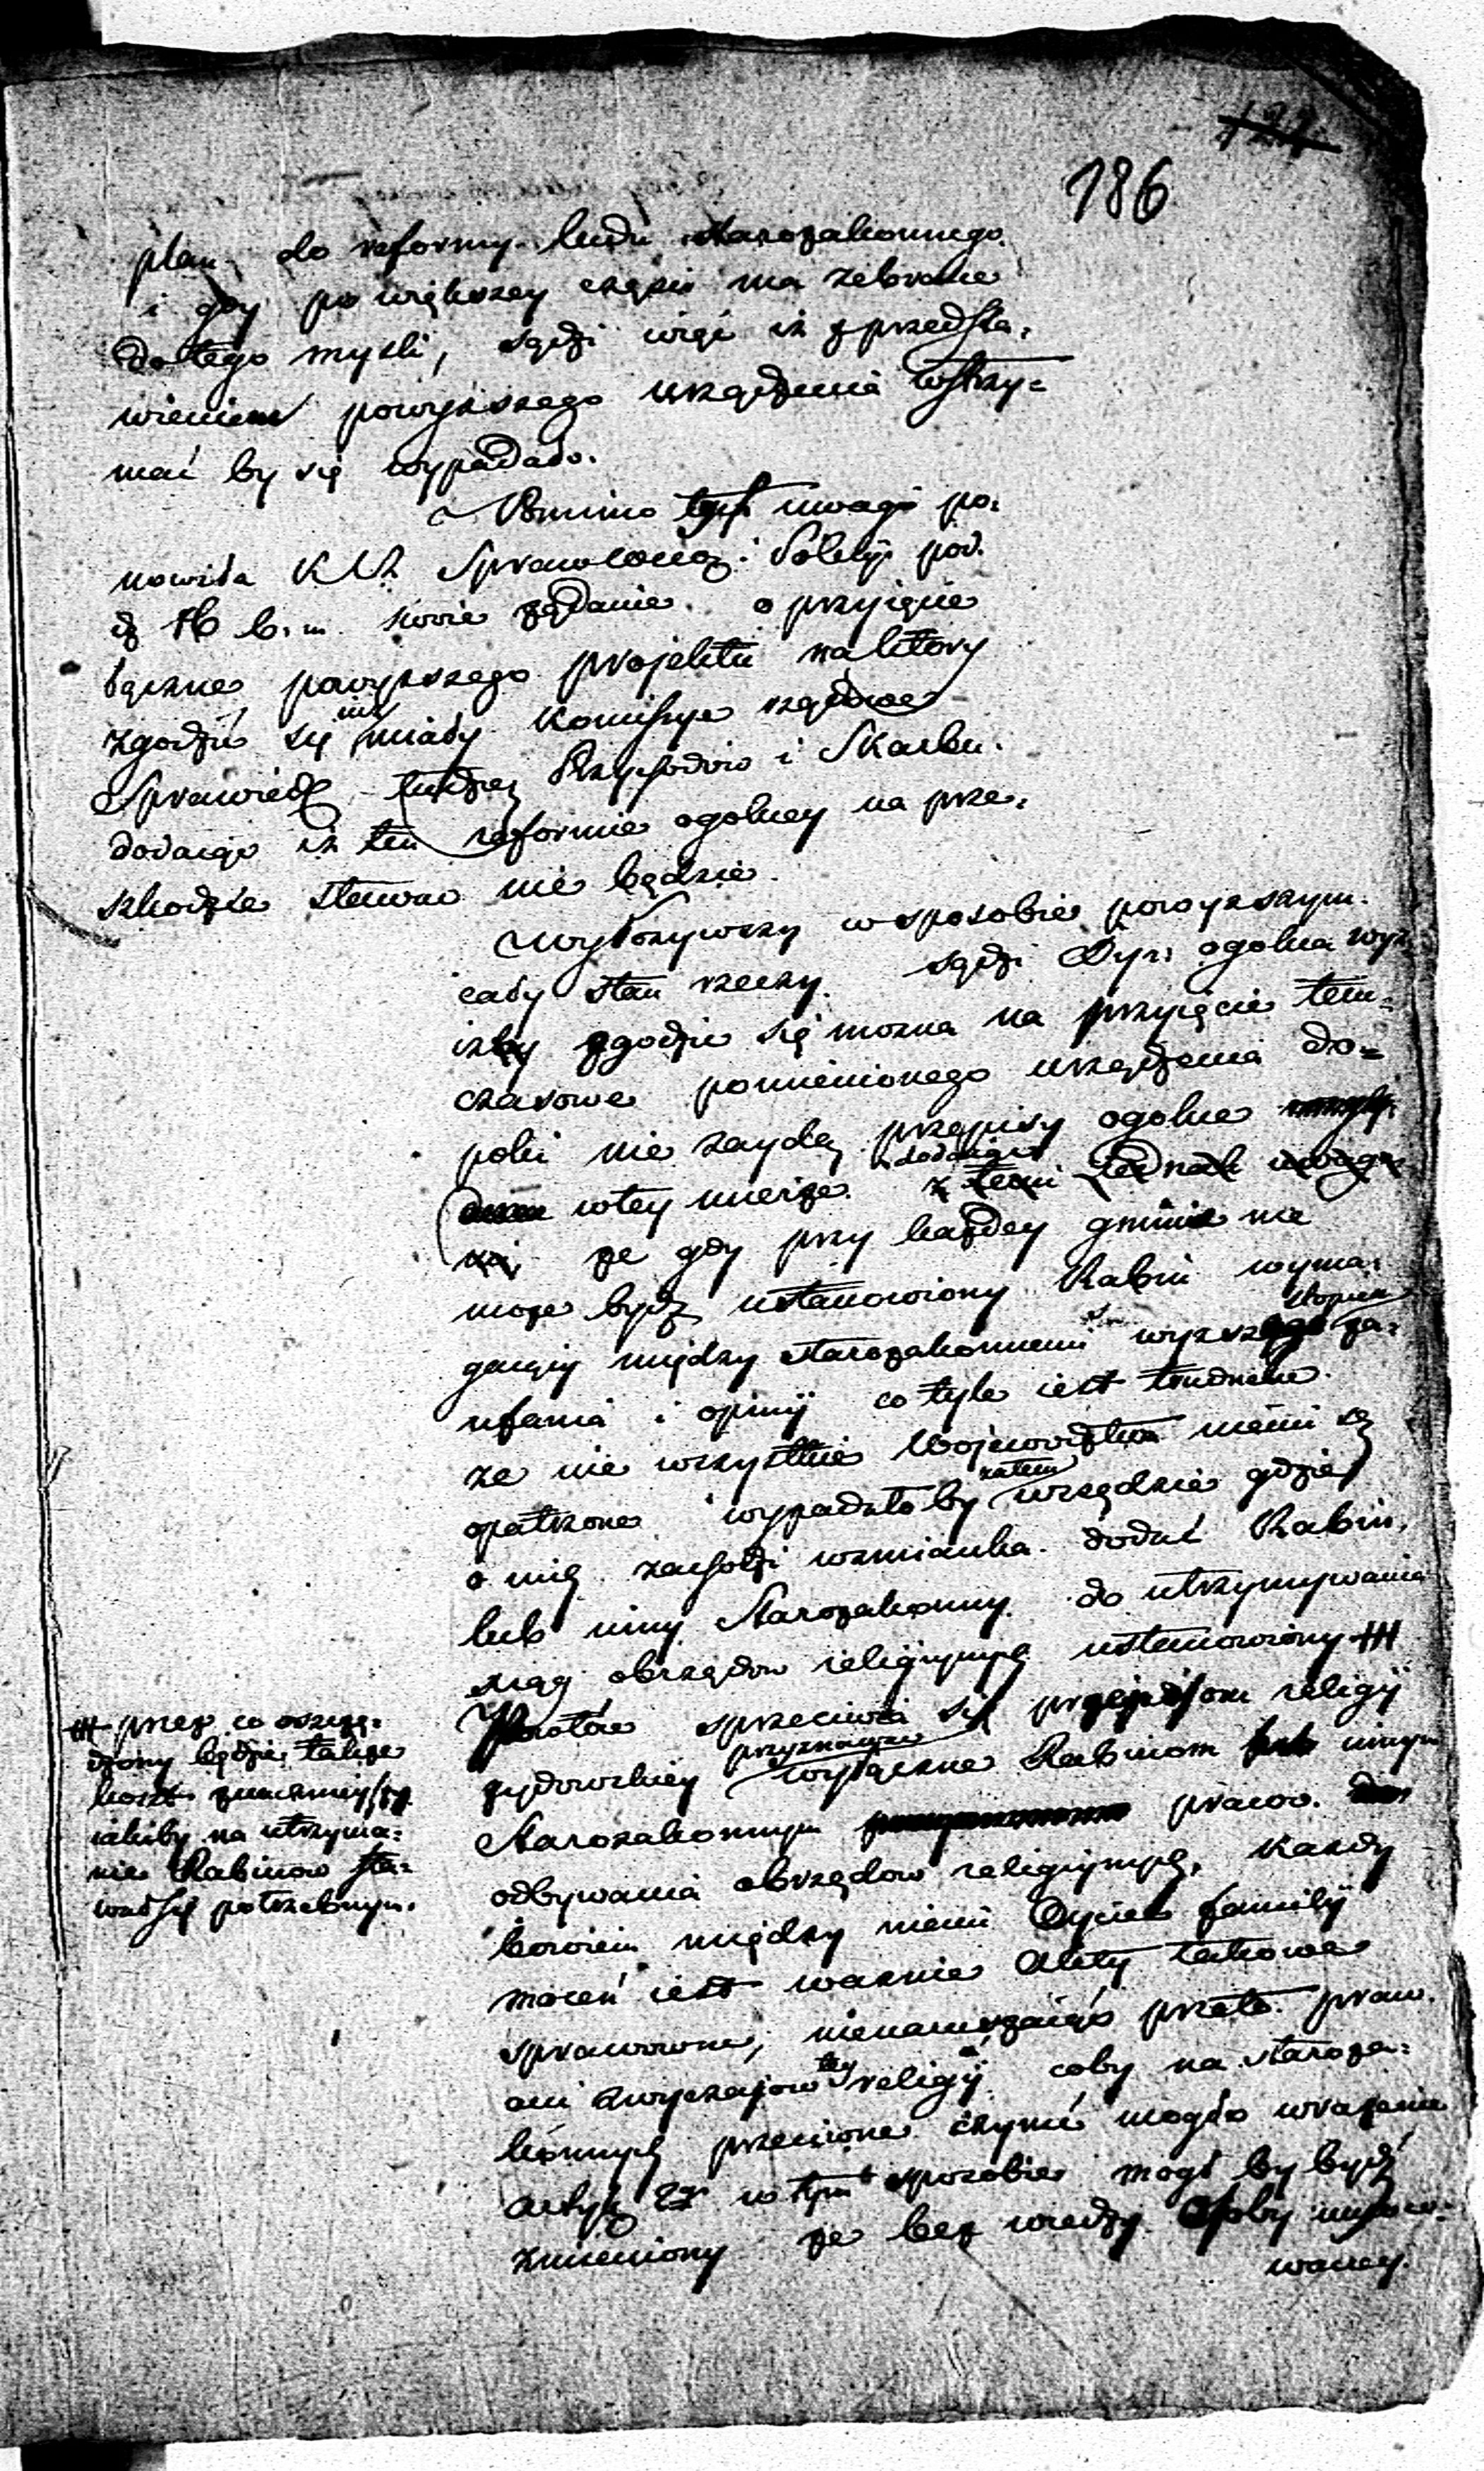 186
plan do reformy ludu starozakonnego
i gdy po większey częsci ma zebrane
do tego mysli, sądzi więc iż z przedsta-
wieniem powyższego urządzenia wstrzy=
mać by się wypadało.
Pomimo tych uwagi po-
nowiła Spraw Policyi pod.
16 b. m. swoie żądanie o przyięcie
łączne powyższego projektu na ktory
zgodzić się iuż miały Kommissye rządowe
Sprawiedl tudzież Przychodow i Skarbu.
dodaiąc iż ten reformie ogolney na prze-
szkodzie stawać nie będzie.
Wyłożywszy w sposobie powyższym
cały stan rzeczy sądzi Dyr: ogolna wyz
iżby zgodzić się można na przyięcie tym-
czasowe pomienionego urządzenia do=
poki nie zaydą przepisy ogolne
w tey mierze dodaiąc z tem iednak uwagą
że gdy przy każdey gminie nie
może bydź ustanowiony Rabin wyma-
gaiący między starozakonnemi wyższego stopnia za-
ufania i opinij co tyle iest trudnem
że nie wszystkie Woiewodztwa niemi są
opatrzone wypadałoby zatem wszędzie gdzie
o nię zachodzi wzmianka dodać Rabin,
lub inny Starozakonny do utrzymywania
xiąg obrządow religiynych ustanowiony ###
sprzeciwia się przepisom religij
żydowskiey przyznawać wyłącznie Rabinom lub innym
Starozakonnym prawo
odbywania obrzędow religiynych, każdy
bowiem między niemi Oyciec familij
mocen iest ważnie Akty takowe
sprawować, nienaruszaiąc przeto praw
ani zwyczajow tey religij coby na staroza-
konnych przeciwne czynić mogło wrażenie
Artyk 27 w tym sposobie mogł by bydź
zmieniony że bez wiedzy Osoby
waney.
### przez co oszczę-
dzony będzie także
koszt znacznieyszy
iakiby na utrzyma-
nie Rabinow sta-
wał się potrzebnym.